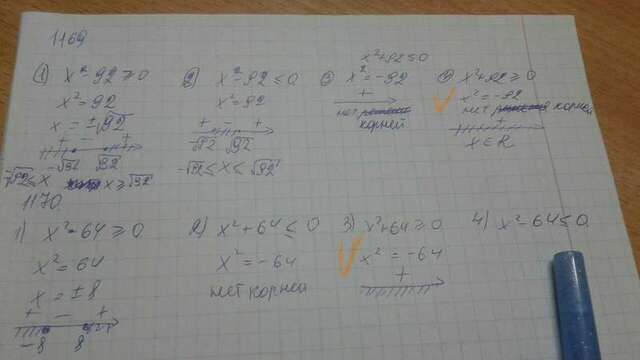 1169
1) x² - 92 ≥ 0
x² = 92
x = ±√92
+ - +
-√92 √92
x ≥ √92
2) x² - 92 ≤ 0
x² = 92
+ - +
-√92 √92
-√92 ≤ x ≤ √92
3) x² + 92 ≤ 0
x² = -92
+
нет корней
4) x² + 92 ≥ 0
x² = -92
нет корней
+
x ∈ R
1170.
1) x² - 64 ≥ 0
x² = 64
x = ±8
+ - +
-8 8
2) x² + 64 ≤ 0
x² = -64
нет корней
3) x² + 64 ≥ 0
x² = -64
+
4) x² - 64 ≤ 0